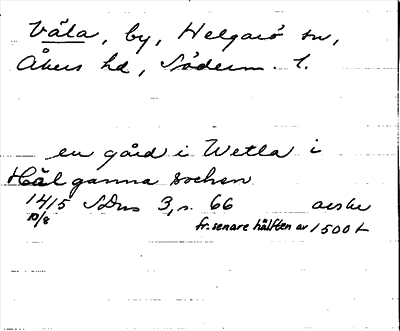 Väla, by, Helgarö sn,
Åkers hd, Söderm. l.
en gård i Wetla i
Hälganna sochen
1415 SDns 3, s. 66 avskr
10/8 fr. senare hälften av 1500 t